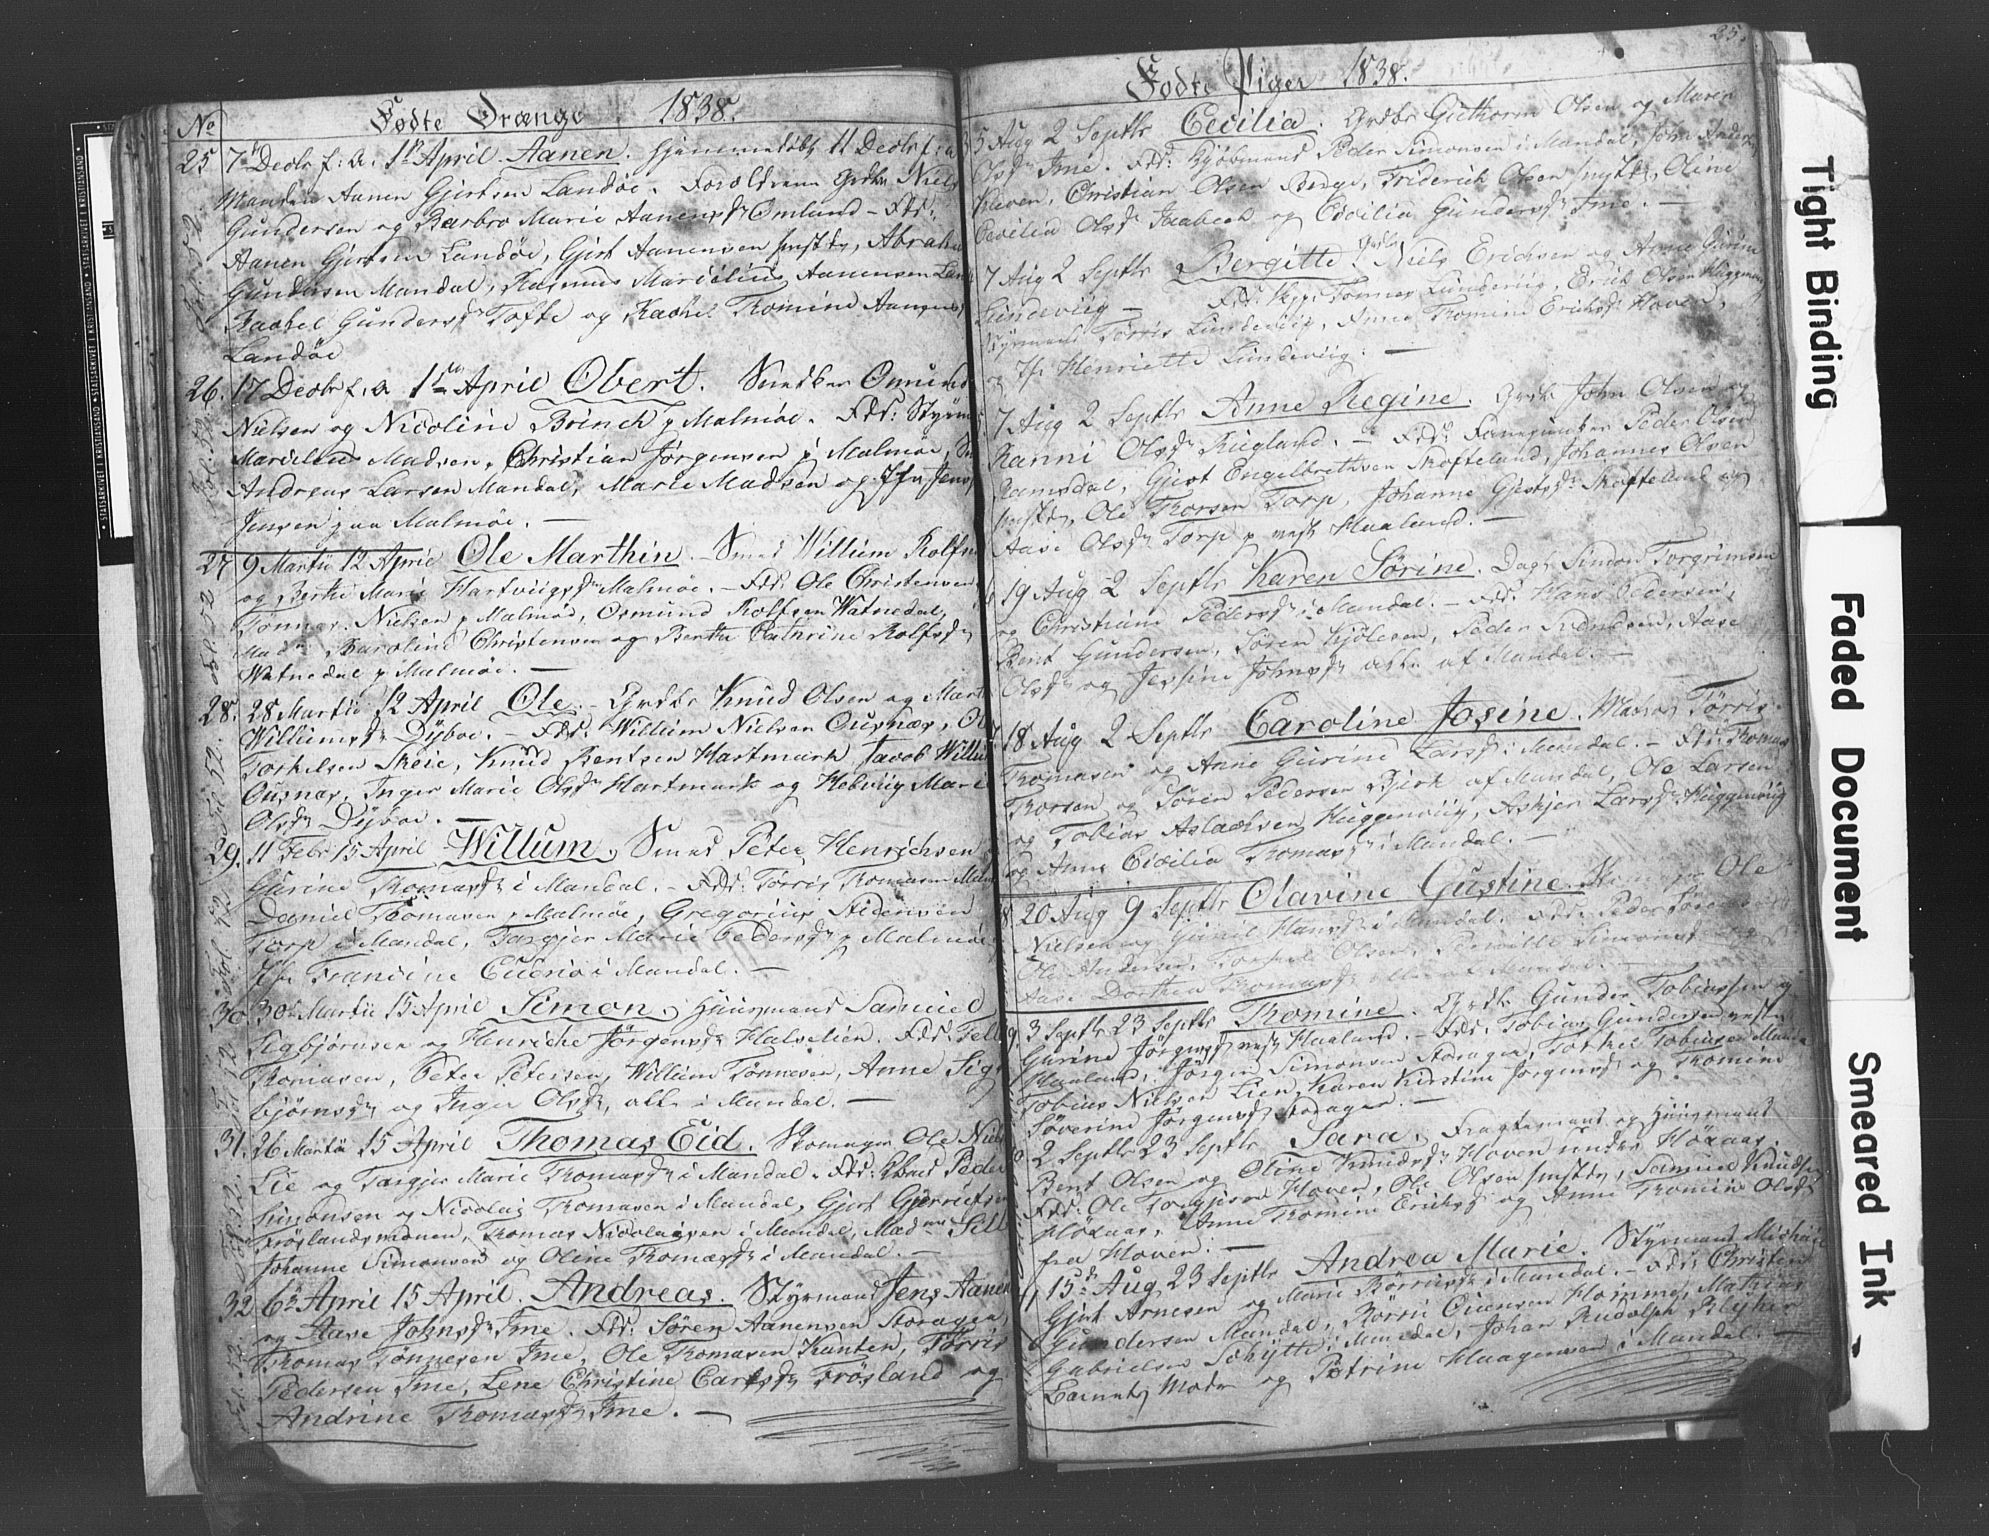 Fødte Drænge 1838.
No
25 7de Decbr f: a. 1ste April. Aanen. Hjemmedøbt 11 Decbr f: a
Aanen Gjertsen Landøe. Forældrene Grdbr Niels
Gundersen og Barbro Marie Aanensdr Omland - Fdd:
Aanen Gjertsen Landöe, Gjert Aanensen smstds, Abraham
Gundersen Mandal, Rasmus Marcelius Aanensen
Rachel Gundersdr Tofte og Rachel Tomine Aanensdr
Landöe
26. 17 Decbr f: a 1ste April Obert. Snedker Omund
Nielsen og Nicoline Brinch p Malmøe. Fdd: Styrm
Marcelius Madsen, Christian Jörgensen p Malmøe,
Andreas Larsen Mandal, Marte Madsen og Jfr
Jensen paa Malmøe. —
27 9 Martii 12 April Ole Marthin. Smed Willum Rolfsen
og Berthe Marie Hartvigsdr Malmøe. - Fdd: Ole Christensen
Tönnes Nielsen p Malmøe, Osmund Rolfsen Watnedal,
Madm Karoline Christensen og Berthe Cathrine Rolfsdr
Watnedal p Malmøe. —
28. 28 Martii 12 April Ole. - Grdbr Knud Olsen og Marte
Willumsdr Dÿboe. - Fdd: Willum Nielsen Ousnæs, Ole
Torkelsen Skeie, Knud Bentsen Hartmark Jacob Willums
Ousnæs, Inger Marie Olsdr Hartmark og Helvig Marie
Olsdr Dÿboe. —
29. 11 Febr 15 April Willum. Smed Peter Henrichsen
Gurine Thomasdr i Mandal. - Fdd: Törris Thomasen
Daniel Thomasen p Malmøe, Gregorius
Torp i Mandal, Targjer Marie Pedersdr p Malmøe
Jfr Frandine i Mandal. —
30 30te Martii 15 April Simon. Huusmand Samuel
Sigbjörnsen og Henriche Jörgensdr Halselien. Fdd:
Thomasen, Peter Petersen, Willum Tönnesen, Anne Sig-
björnsdr og Inger Olsdr, alle i Mandal. —
31. 26 Martii 15 April Thomas Eid. Skomager Ole Niels
Lie og Targjer Marie Thomasdr i Mandal. Fdd: Kbmd Peder
Simonsen og Nicolai Thomasen i Mandal, Gjert Gjertsen
Frøslandsmonen, Thomas Nicolaisen i Mandal, Madme
Johanne Simonsen og Oline Thomasdr i Mandal. —
32 6te April 15 April. Andreas. Styrmand Jens Aanensen
og Aase Johnsdr Ime. Fdd: Sören Aanensen Storager,
Thomas Tönnesen Ime, Ole Thomasen Kanten, Törris
Pedersen Ime, Lene Christine Carlsdr Frøsland og
Andrine Thomasdr Ime. —
25.
Fødte Piger 1838.
5 Aug 2 Septbr Cecilia. Grdbr Guthorm Olsen og Maren
Olsdr Ime. Fdd: Kjøbmand Peder Simonsen i Mandal, John Anders
Haven, Christian Olsen Berge, Friderich Olsen smstds, Oline
Cecilia Olsdr og Cecilia Gundersdr Ime. —
7 Aug 2 Septbr Bergitte. Grdbr Niels Erichsen og Anne Gurine
Lundeviig — Fdd: Skpr Tönnes Lundeviig, Erich Olsen
Styrmand Törris Lundeviig, Anne Thomine Ericksdr Hoven,
og Jfr Henriette Lundeviig. —
7 Aug 2 Septbr Anne Regine. Grdbr John Olsen og
Ranni Olsdr Rugland. - Fdd: Peder Olsen
Ramsdal, Gjert Engelbrethsen Skofteland, Johannes Olsen
smstds, Ole Thorsen Torp, Johanne Gjertsdr Skofteland og
Aase Olsdr Torp p vest Haaland. —
19 Aug 2 Septbr Karen Sörine. Dagl Simon Torgrimsen
og Christiane Pedersdr i Mandal. - Fdd: Hans Pedersen,
Bent Gundersen, Sören Peder Aase
Olsdr og Jessine Johnsdr alle af Mandal. —
18 Aug 2 Septbr Caroline Josine. Matros Törris
Thomasen og Anne Gurine Larsdr i Mandal. - Fdd: Thomas
Thorsen og Sören Pedersen Bjerk af Mandal, Ole Larsen
og Tobias Aslachsen Huggenviig, Askjer Larsdr Huggenviig
og Anne Cicilia Thomasdr i Mandal. —
20 Aug 9 Septbr Olavine Gustine. Ole
Nielsen og Gunil Hansdr i Mandal. Fdd: Peder
Ole Andersen, Torkel Olsen, Pernille
Aase Dorthea Thomasdr alle af Mandal. —
3 Septbr 23 Septbr Thomine. Grdbr Gunder Tobiassen og
Gurine Jörgensdr vest Haaland. - Fdd: Tobias Gundersen vest
Haaland, Jörgen Simonsen Storager, Torkel Tobiasen
Tobias Nielsen Lien, Karen Kirstine Jörgensdr og Thomine
Söverine Jörgensdr Storager. —
2 Septbr 23 Septbr Sara. Fragtemand og Huusmand
Bent Olsen og Oline Knudsdr Hoven under Höxaas.
Fdd: Ole Torgjersen Hoven, Ole Olsen smstds, Samuel Knudsen
Höxaas, Anne Thomine Ericksdr og Anne Thomine Olsdr
fra Hoven. —
15de Aug 23 Septbr Andrea Marie. Styrmand Michael
Gjert Arnesen og Marie i Mandal. - Fdd: Christen
Gundersen Mandal, Homme, Mathias
Gabrielsen Schytte i Mandal, Johan Rudolph
og Petrine Haagensen i Mandal.
Fol. 52.
Fol. 52
Fol. 52
Fol. 52.
Fol. 52
Fol. 52
Fol. 52.
Fol. 52.
Tight Binding
Faded Document
Smeared Ink
STATSARKIVET I KRISTIANSAND